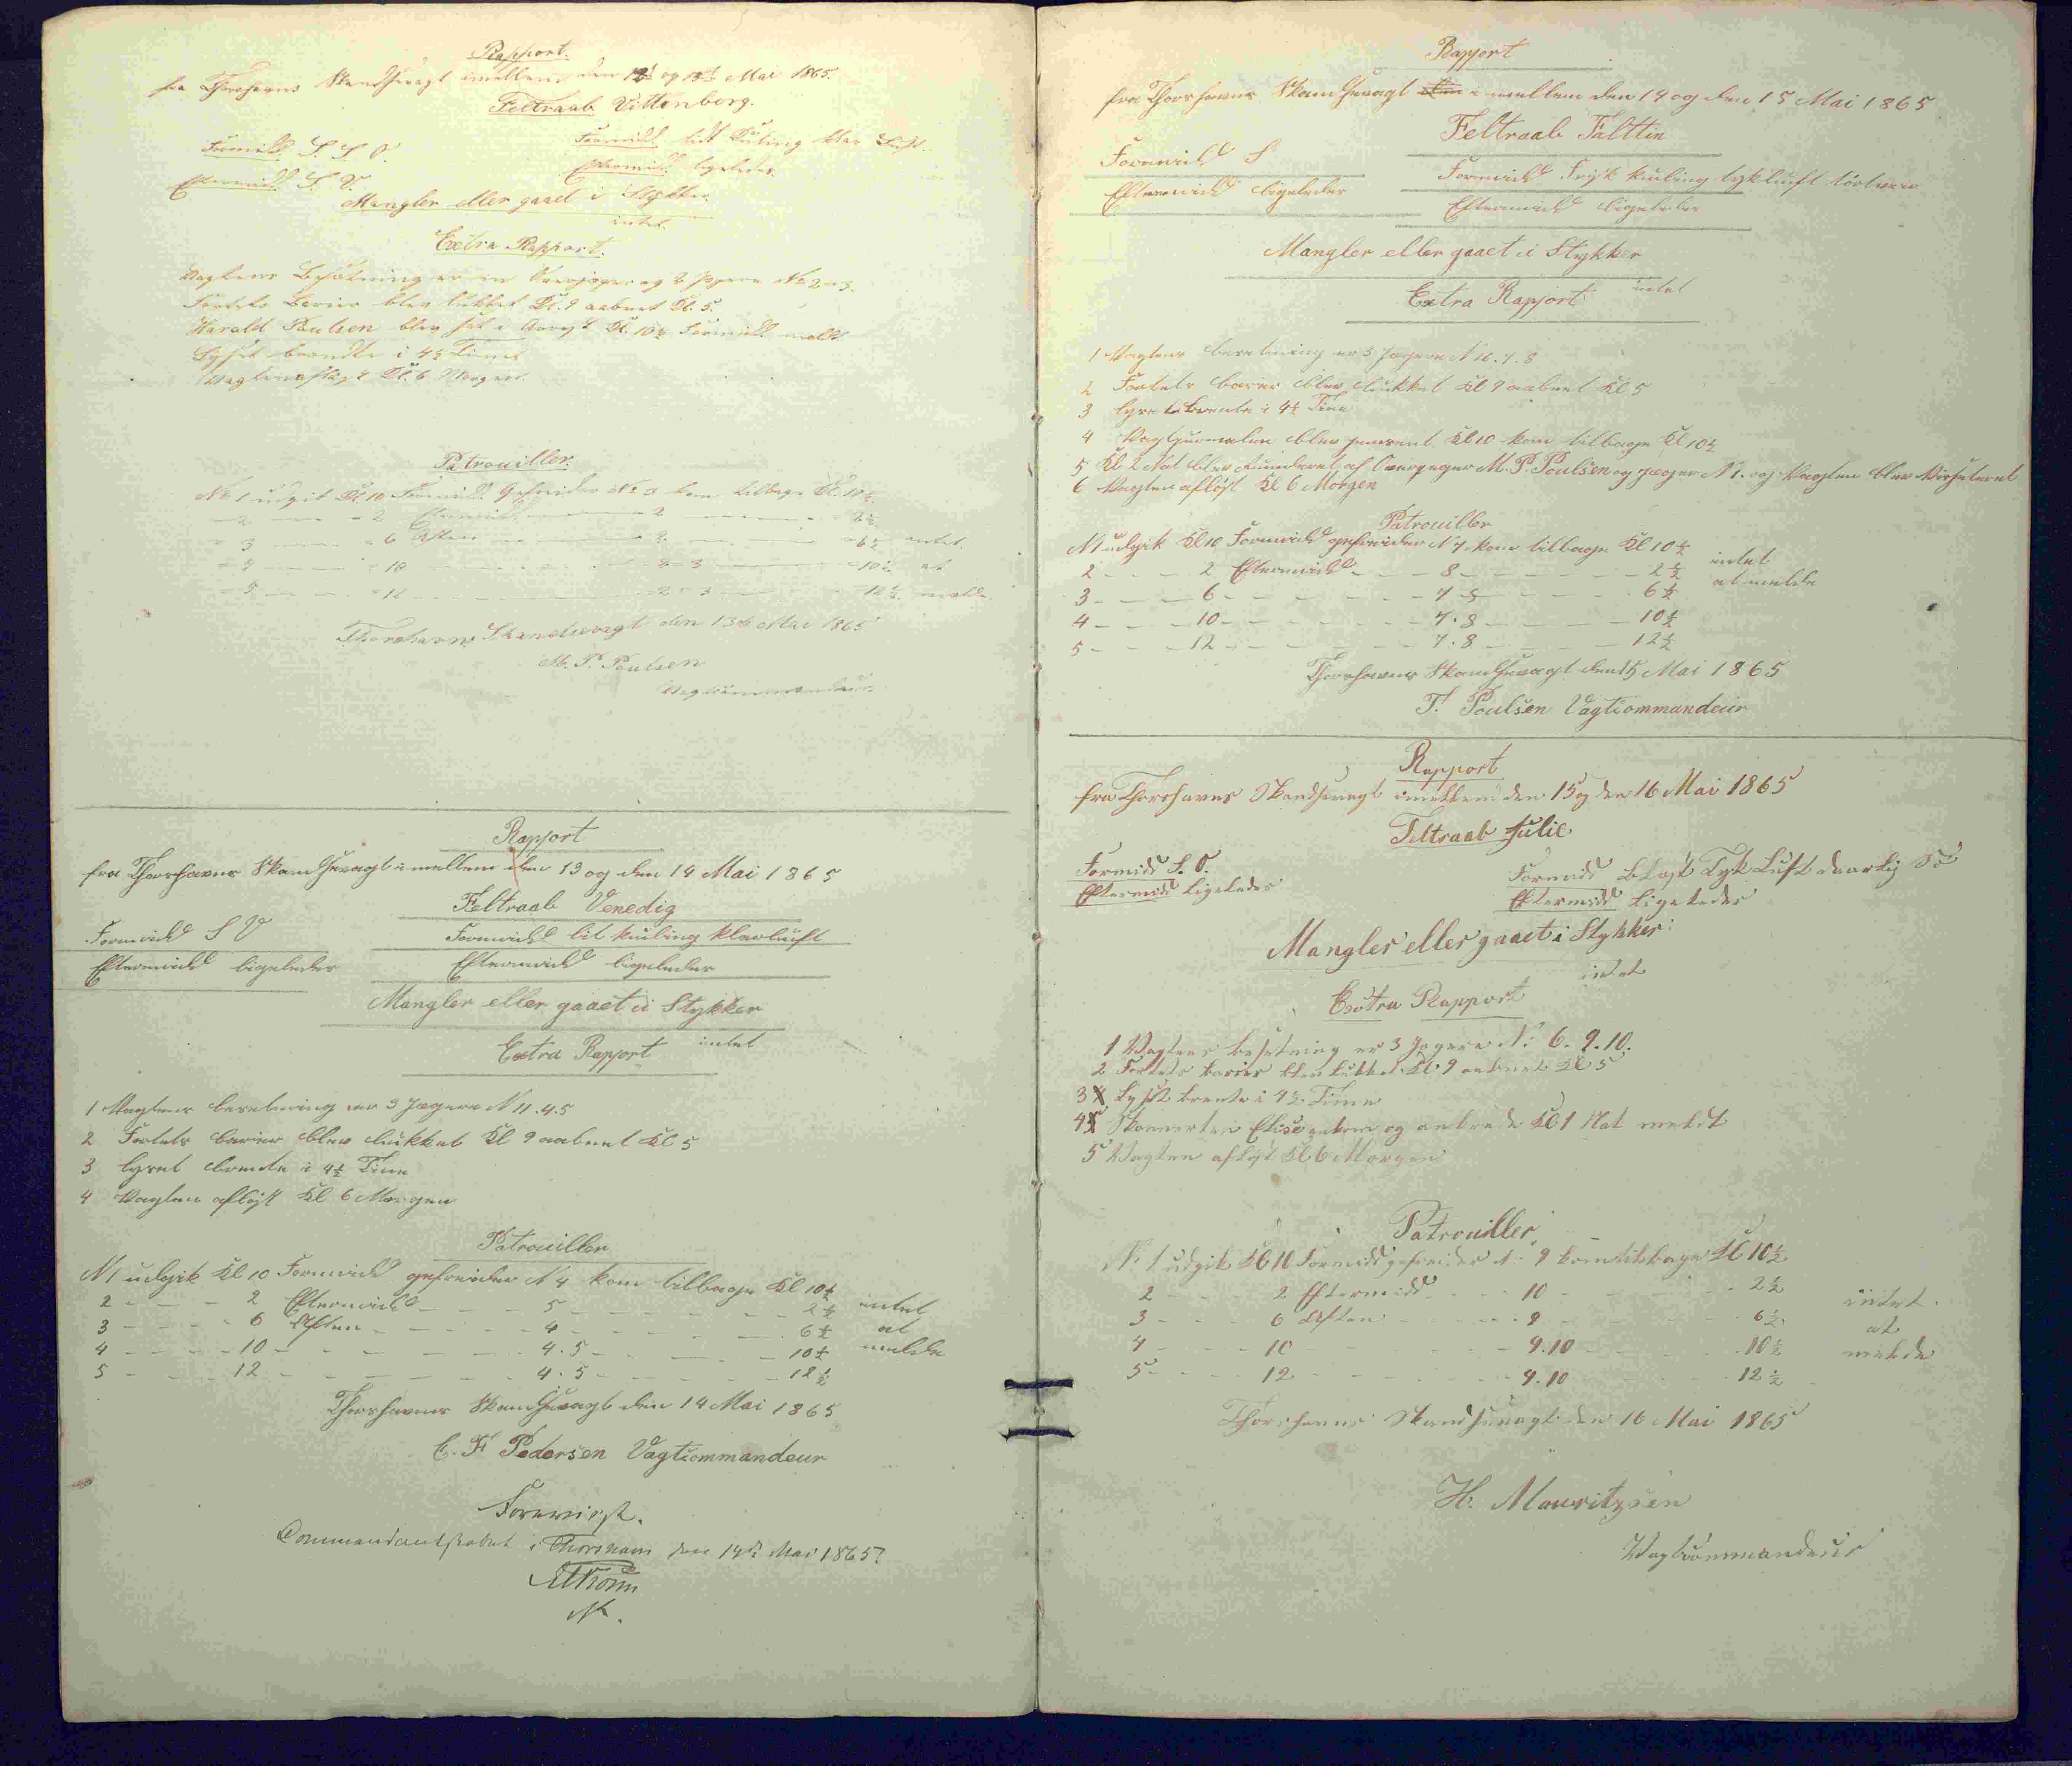 Rapport.
fra Thorshavns Skandsevagt imellem den 12t og 13d Mai 1865.
Feltraab Vittenberg.
Formidd. S. S. O.
Formidd. lidt Kuling klar Luft.
Eftermidd. S. V.
Eftermidd. ligeledes.
Mangler eller gaaet i Stykker
intet.
Extra Rapport.
Vagtens Besætning er en Overjæger og 2 Jægere No 2 = 3.
Fortets Barier blev lukket Kl. 9 aabnet Kl. 5.
Harald Poulsen blev sat i Arrest Kl. 10½ Formidd.
Lyset brændte i 4½ Time
Vagten afløst Kl. 6 Morgen.
Patrouiller.
No 1 udgik Kl. 10 Formidd. Gefreider No 3 kom tilbage Kl. 10½
= 2 — = 2 Eftermidd. — 2 — = 2½
= 3 — = 6 Aften — 3 — = 6½ intet
= 4 — = 10 — 2 = 3 — = 10½ at
= 5 — = 12 — 2 = 3 — 12½ melde
Thorshavns Skandsevagt den 13de Mai 1865
M. P. Poulsen
Vagtcommandeur.
Rapport
fra Thorshavns Skandsevagt i mellem den 13 og den 14 Mai 1865
Feltraab Venedig
Formidd S V
Formidd lit kuling klarluft
Eftermidd ligeledes
Eftermidd ligeledes
Mangler eller gaaet i Stykker
Extra Rapport intet
1 Vagtens besetning er 3 Jægere N 11. 4. 5
2 Fortets barier blev lukket Kl 9 aabnet Kl 5
3 lyset brente i 4½ Time
4 Vagten afløst Kl 6 Morgen
Patrouiller
N 1 udgik Kl 10 Formidd gefreider N 4 kom tilbage Kl 10½
2 - - - 2 Eftermidd - - - 5 - - - 2½ intet
3 - - - 6 Aften - - - 4 - - - 6½ at
4 - - - 10 - - - 4. 5 - - - 10½ melde
5 - - - 12 - - - 4. 5 - - - 12½
Thorshavns Skandsevagt den 14 Mai 1865
C. F Pedersen Vagtcommandeur
Forevist.
Commandantskabet i Thorshavn den 14de Mai 1865.
Rapport
fra Thorshavns Skandsevagt den i mellem den 14 og den 15 Mai 1865
Feltraab Falttin
Formidd S
Formidd Frisk kuling tykluft tørtveir
Eftermidd ligeledes
Eftermidd ligeledes
Mangler eller gaaet i Stykker
Extra Rapport intet
1 Vagtens besetning er 3 Jægere N 16. 7. 8
2 Fortets barier blev lukket Kl 9 aabnet Kl 5
3 lyset brente i 4½ Time
4 Vagtjurnalen blev Kl 10 kom tilbage Kl 10½
5 Kl 2 Nat blev runderet af Overjeger M. P. Poulsen og jæger N 1. og Vagten blev Visiteret
6 Vagten afløst Kl 6 Morgen
Patrouiller
N 1 udgik Kl 10 Formidd gefreider N 7 kom tilbage Kl 10½
2 - - - 2 Eftermidd - - - 8 - - - 2½ intet
3 - - - 6 - - - 7 - - - 6½ at melde
4 - - - 10 - - - 7. 8 - - - 10½
5 - - - 12 - - - 7. 8 - - - 12½
Thorshavns Skandsevagt den 15 Mai 1865
T. Poulsen Vagtcommandeur
Rapport
fra Thorshavns Skandsevagt imellem den 15 og den 16 Mai 1865
Feltraab Julie
Formidd S. O.
Formidd Blæst Tyk Luft daarlig Sø
Eftermidd Ligeledes
Eftermidd Ligeledes
Mangler eller gaaet i Stykker
intet
Extra Rapport
1 Vagtens besetning er 3 Jegere N: 6. 9. 10.
2 Fortets barier blev lukket Kl. 9 aabnet Kl 5
3 Lyset brente i 4½ Time
4 Skonnerten Elise ankom og ankrede Kl 1 Nat meldt
5 Vagten afløst Kl. 6 Morgen
Patrouiller
N: 1 udgik Kl 10 Formidd gefreider N: 9 kom tilbage Kl 10½
2 - - - 2 Eftermidd - - - 10 - - - 2½ intet
3 - - - 6 Aften - - - 9 - - - 6½ at
4 - - - 10 - - - 9. 10 - - - 10½ melde
5 - - - 12 - - - 9. 10 - - - 12½
Thorshavns Skandsevagt den 16 Mai 1865
H. Mouritzsen
Vagtcommandeur